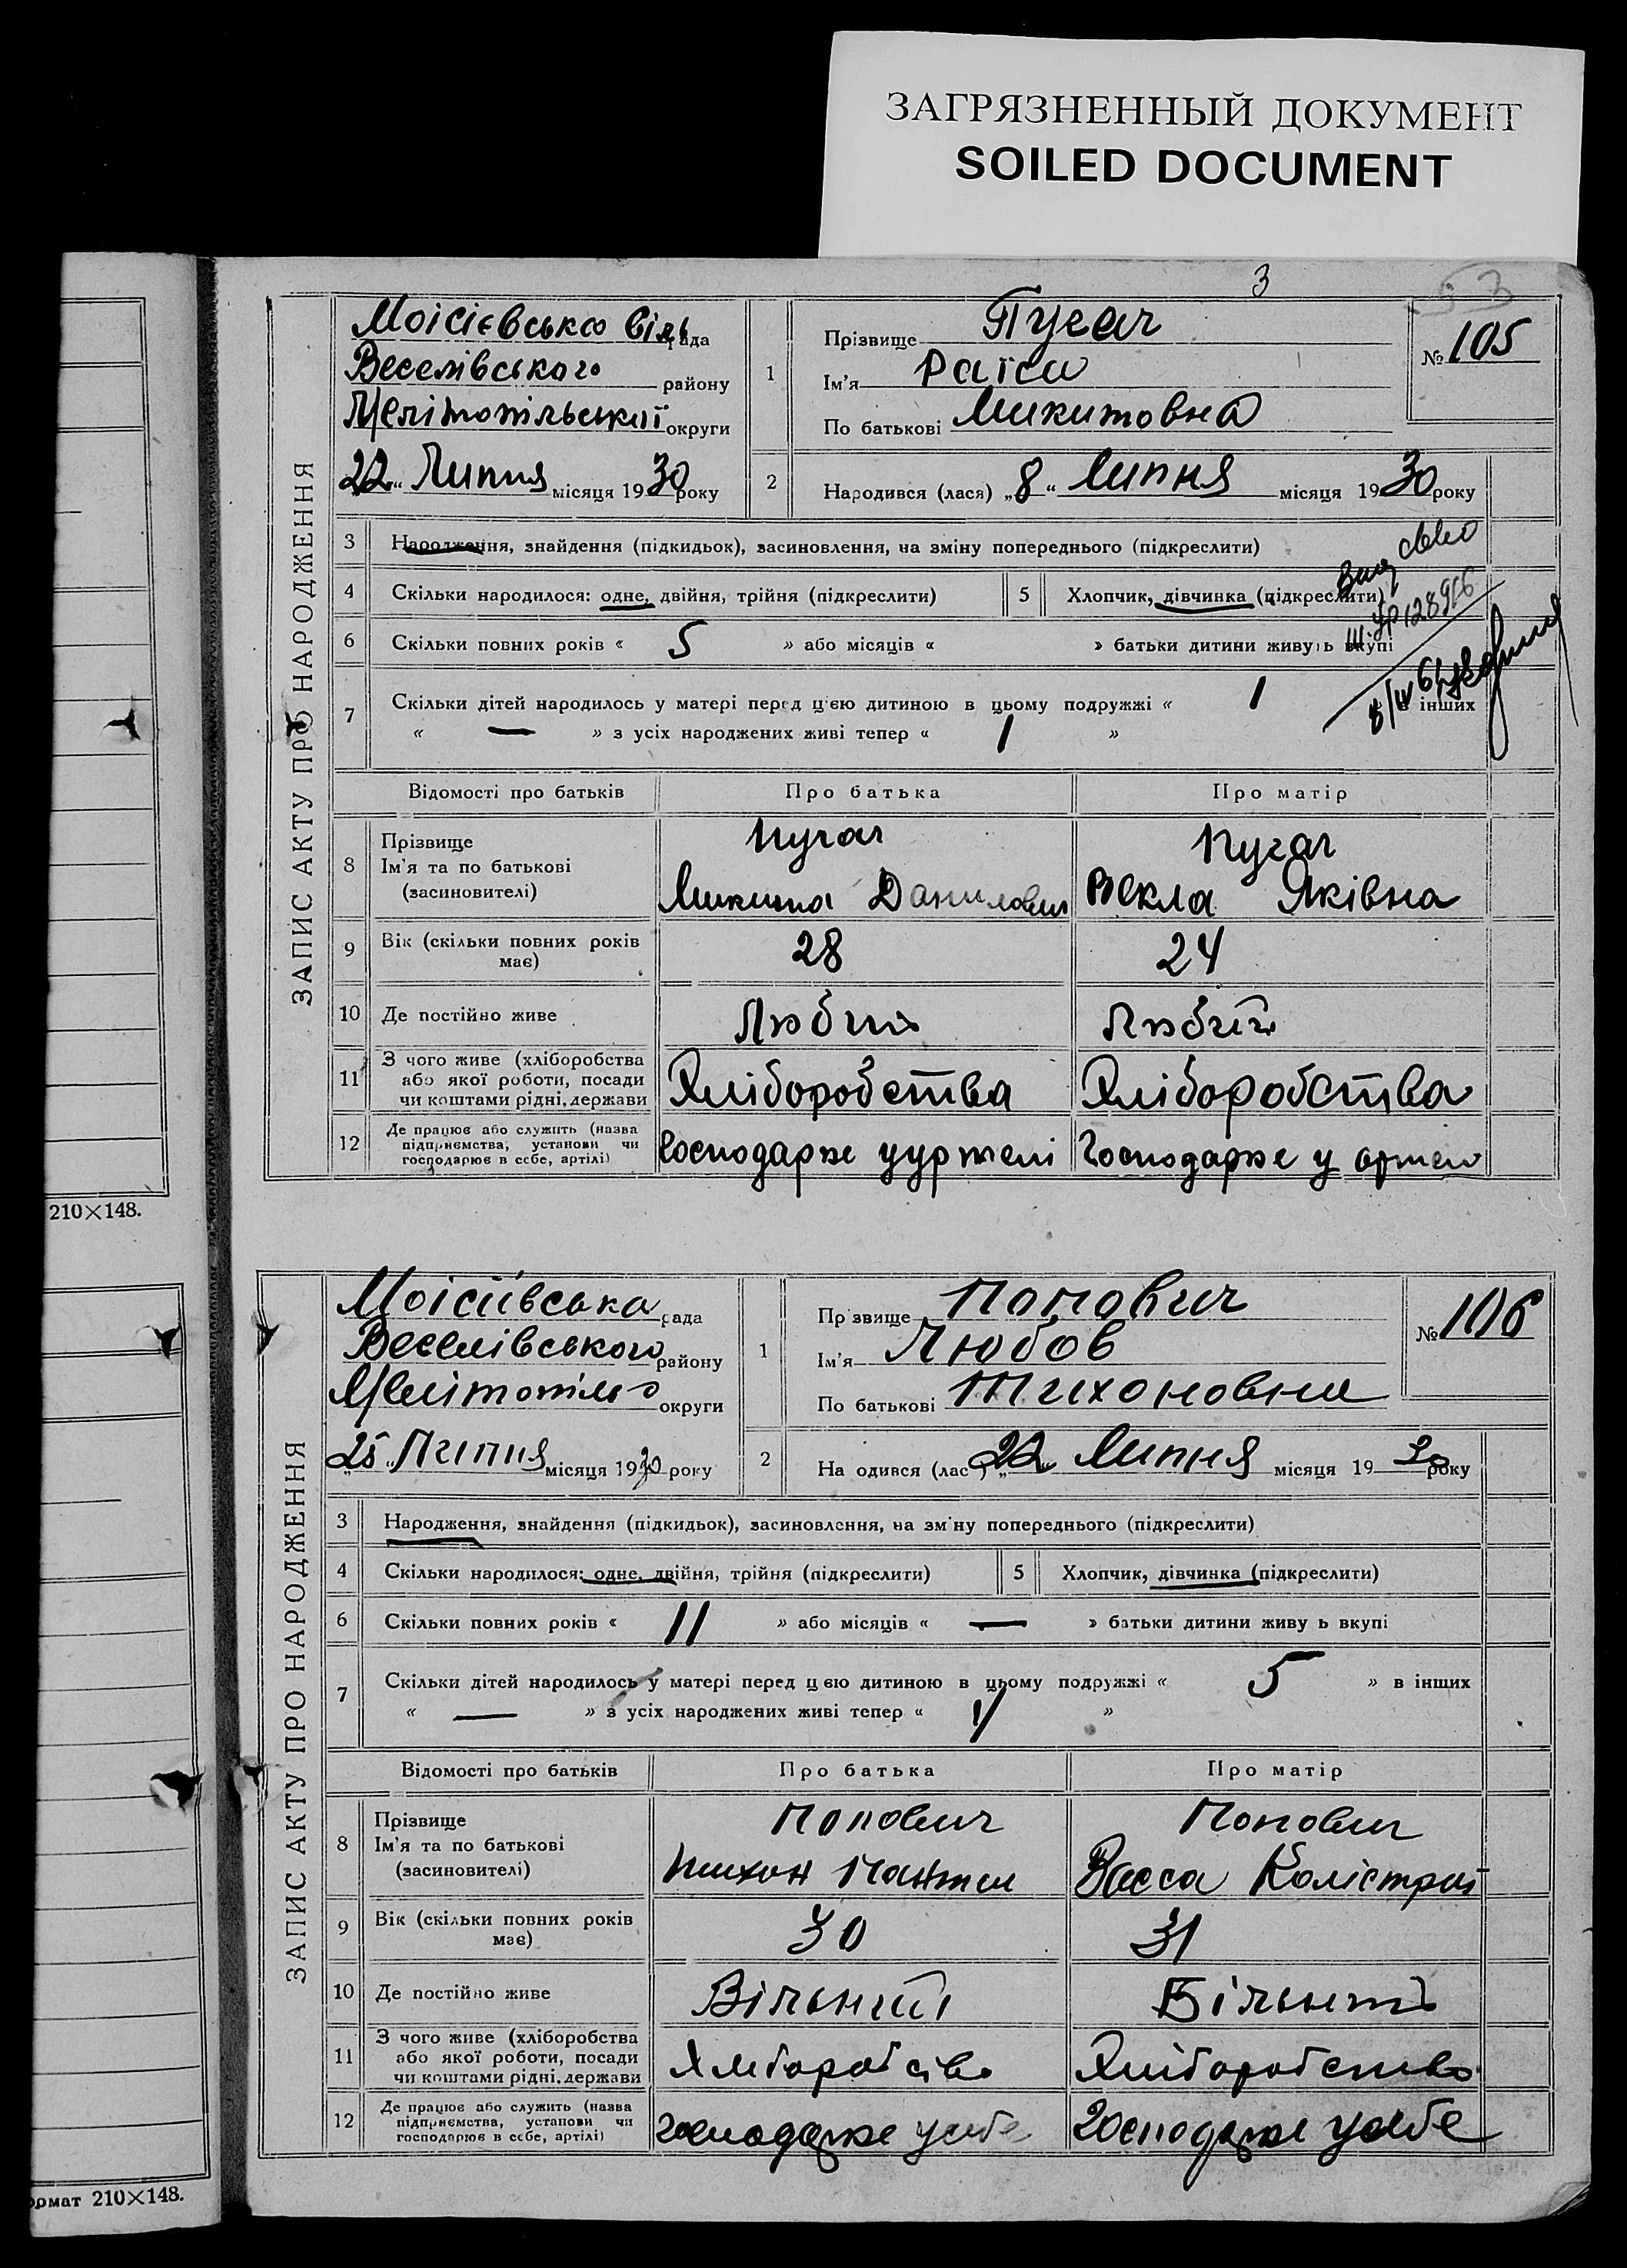 ЗАГРЯЗНЕННЫЙ ДОКУМЕНТ
SOILED DOCUMENT
3
53
ЗАПИС АКТУ ПРО НАРОДЖЕННЯ
Моісієвсько рада
Веселівського району
Мелітопільської округи
"22" Липня місяця 1930 року
1
Прізвище Пугач
Ім'я Раїса
По батькові Микитовна
№ 105
2
Народився (лася) „8“ Липня місяця 1930 року
3 Народження, знайдення (підкидьок), засиновлення, на зміну попереднього (підкреслити)
4 Скільки народилося: одне, двійня, трійня (підкреслити) 5 Хлопчик, дівчинка (підкреслити)
6 Скільки повних років « 5 » або місяців « » батьки дитини живуть вкупі
7 Скільки дітей народилось у матері перед цією дитиною в цьому подружжі « 1 інших
« — » з усіх народжених живі тепер « 1 »
Відомості про батьків Про батька Про матір
8 Прізвище Пугач Пугач
Ім'я та по батькові
(засиновителі) Микита Данилович Векла Яківна
9 Вік (скільки повних років має) 28 24
10 Де постійно живе
11 З чого живе (хліборобства
або якої роботи, посади
чи коштами рідні, держави Хліборобства Хліборобства
12 Де працює або служить (назва
підприємства, установи чи
господарює в себе, артілі) Господарже Господарже у
210×148.
ЗАПИС АКТУ ПРО НАРОДЖЕННЯ
Моісіївська рада
Веселівського району
округи
„25“ Липня місяця 1930 року
1
Пр звище Попович
Ім'я Любов
По батькові Тихоновна
№ 106
2
На одився (лас ) „22“ Липня місяця 1930 року
3 Народження, знайдення (підкидьок), засиновлення, на зм'ну попереднього (підкреслити)
4 Скільки народилося: одне, двійня, трійня (підкреслити) 5 Хлопчик, дівчинка (підкреслити)
6 Скільки повних років « 11 » або місяців « — » батьки дитини живу ь вкупі
7 Скільки дітей народилось у матері перед ц єю дитиною в цьому подружжі « 5 » в інших
« — » з усіх народжених живі тепер « »
Відомості про батьків Про батька Про матір
8 Прізвище Попович Попович
Ім'я та по батькові
(засиновителі) Тихон Васса
9 Вік (скільки повних років має) 30 31
10 Де постійно живе Вільний
11 З чого живе (хліборобства
або якої роботи, посади
чи коштами рідні, держави Хліборобство
12 Де працює або служить (назва
підприємства, установи чи
господарює в себе, артілі) господарже усебе господарже усебе
ормат 210×148.